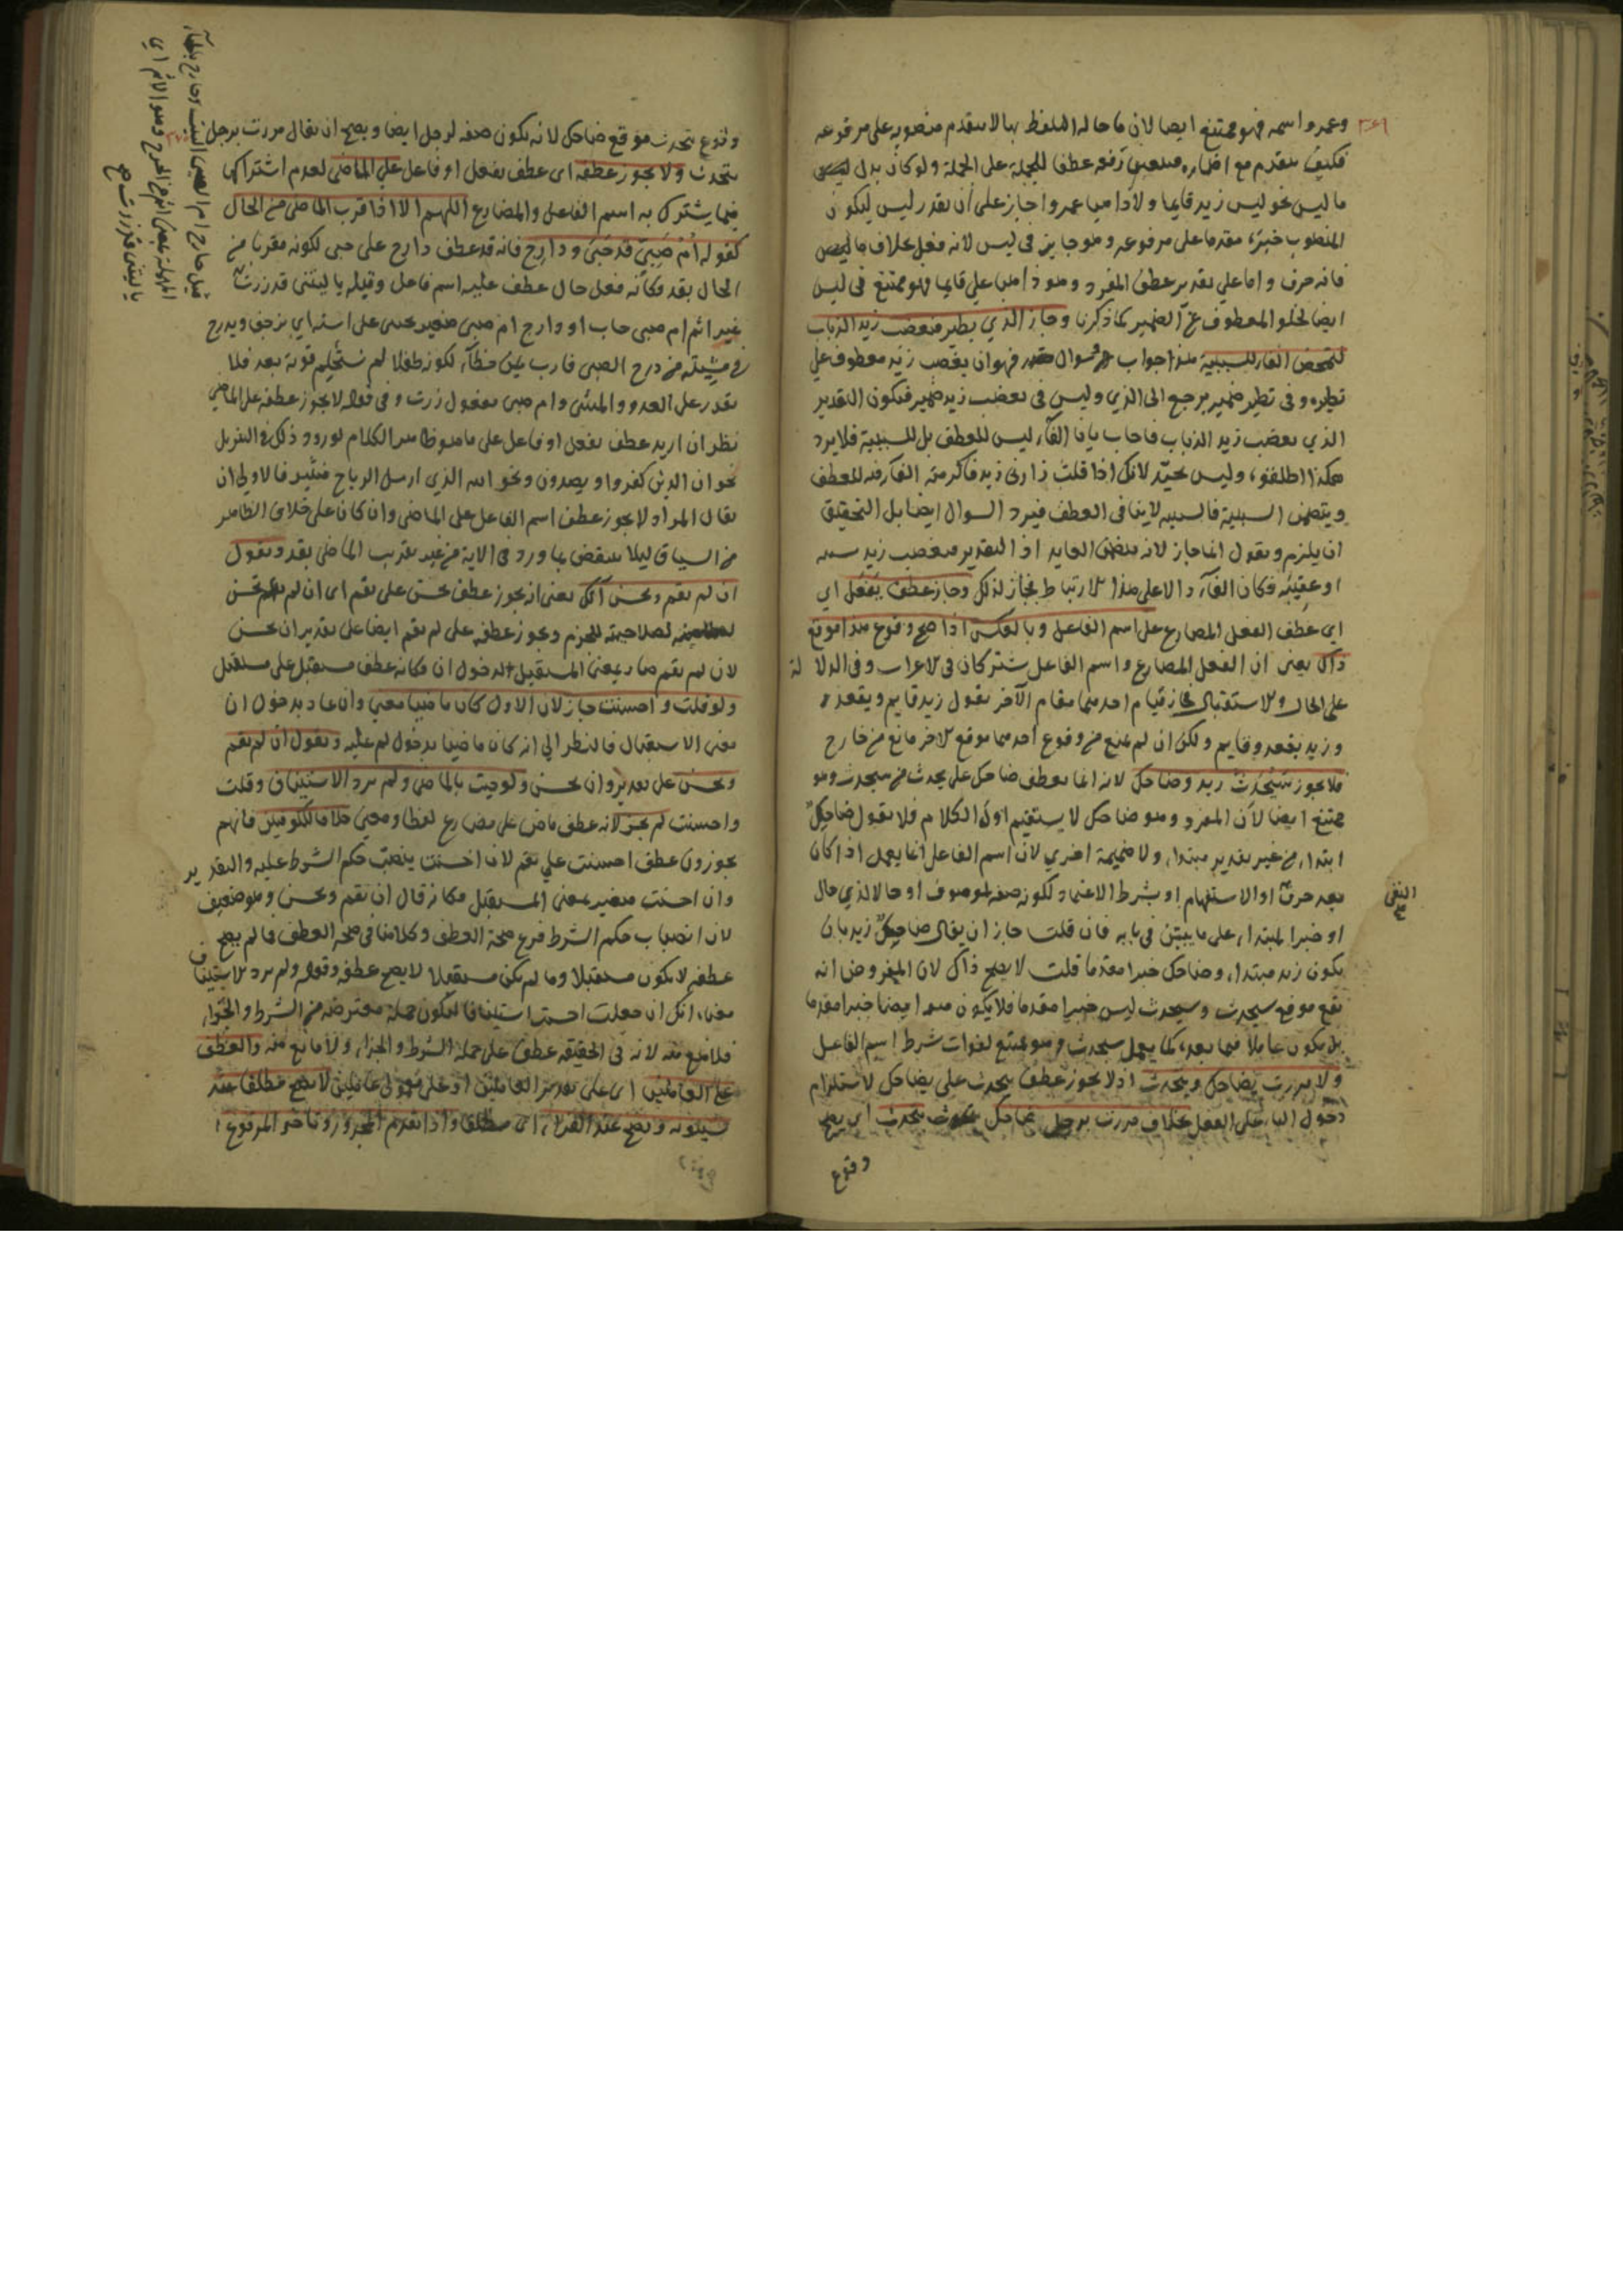 وعمرو اسمه فهو ممتنع ايضا لان ما حاله التلفظ بها لا يتقدم منصوبه على مرفوعه
فكيف يتقدم مع اضماره فيتعين رفعه عطفا للجملة على الجملة ولو كان بدل
ما ليس نحو ليس زيد قايما ولا ذاهبا عمرو جاز على ان يقدر ليس ليكون
المنصوب خبره مقدما على مرفوعه وهو جايز في ليس لانه فعل بخلاف ما
فانه حرف واما على تقدير عطف المفرد وهو ذاهبا على قايما فهو ممتنع في ليس
ايضا لخلو المعطوف عن الضمير كما ذكرنا وجاز الذي يطير فيغضب زيد الذباب
لتمحض الفاء للسببية هذا جواب سوال مقدر فهو ان يغضب زيد معطوف على
تطيره وفي تطير ضمير يرجع الى الذي وليس في يغضب زيد ضمير فيكون التقدير
الذي يغضب زيد الذباب فاجاب بان الفاء ليس للعطف بل للسببية فلا يرد
هكذا اطلقوه وليس بجيد لانك اذا قلت زارني زيد فاكرمته الفاء فيه للعطف
ويتضمن السببية فالسببية لا ينافي العطف فيرد السوال ايضا بل التحقيق
ان يلزم ويقول انما جاز لانه يتضمن العايد اذ التقدير فيغضب زيد بسببه
او عقيبه فكان الفاء دالا على هذا الارتباط فجاز لذلك وجاز عطف يفعل اي
اي عطف الفعل المضارع على اسم الفاعل وبالعكس اذا صح وقوع هذا موقع
ذاك يعني ان الفعل المضارع واسم الفاعل يشتركان في الاعراب وفي الدلالة
على الحال والاستقبال فجاز قيام احدهما مقام الآخر تقول زيد قايم ويقعد
وزيد يقعد وقايم ولكن ان لم يمنع من وقوع احدهما موقع الاخر مانع من خارج
فلا يجوز سيتحدث زيد وضاحك لانه انما يعطف ضاحك على يحدث من سيحدث وهو
ممتنع ايضا لان المفرد وهو ضاحك لا يستقيم اول الكلام فلا تقول ضاحك
ابتداء من غير تقدير مبتداء ولا ضميمة اخري لان اسم الفاعل انما يعمل اذا كان
بعد حرف او الاستفهام او بشرط الاعتماد لكونه صفة لموصوف او حالا لذي حال
النفي
او خبرا لمبتداء على ما يبين في بابه فان قلت جاز ان يقال ضاحك زيد بان
يكون زيد مبتداء وضاحك خبرا مقدما قلت لا يصح ذاك لان المفروض انه
يقع موقع سيحدث وسيحدث ليس خبرا مقدما فلا يكون هو ايضا خبرا مقدما
بل يكون عاملا فيما بعده كما يعمل سيحدث وهو ممتنع لفوات شرط اسم الفاعل
ولا مررت بضاحك ويتحدث اذ لا يجوز عطف يتحدث على بضاحك لاستلزام
دخول الباء على الفعل بخلاف مررت برجل ضاحك يتحدث اي يصح
وقوع
وقوع يتحدث موقع ضاحك لانه يكون صفة لرجل ايضا ويصح ان يقال مررت برجل
يتحدث ولا يجوز عطفه اي عطف يفعل او فاعل على الماضي لعدم اشتراكهما
فيما يشترك به اسم الفاعل والمضارع اللهم الا اذا قرب الماضي من الحال
كقوله ام صبي قد حبى ودارج فانه قد عطف دارج على حبى لكونه مقربا من
الحال بقد فكانه فعل حال عطف عليه اسم فاعل وقيله يا ليتني قد زرت
غير اثم ام صبي حاب او دارج ام صبي صغير يحبى على استه اي يزحف ويدرج
في مشيته من درج الصبي قارب بين خطاه لكونه طفلا لم تستحكم قوته بعد فلا
يقدر على العدو والمشي وام صبي مفعول زرت وفي قوله لا يجوز عطفه على الماضي
نظر ان اريد عطف يفعل او فاعل على ما هو ظاهر الكلام لورود ذلك في التنزيل
نحو ان الذين كفروا ويصدون ونحو الله الذي ارسل الرياح فتثير فالاولى ان
يقال المراد لا يجوز عطف اسم الفاعل على الماضي وان كان على خلاف الظاهر
من السياق ليلا ينتقض بما ورد في الاية من غير تقريب الماضي بقد وتقول
ان لم تقم وتحسن آتك يعني انه يجوز عطف تحسن على تقم اي ان لم تقم وتحسن
لصلاحيته للجزم ويجوز عطفه على لم تقم ايضا على تقدير ان تحسن
لان لم تقم صار بمعنى المستقبل لدخول ان فكانه عطف مستقبل على مستقبل
ولو قلت واحسنت جاز لان الاول كان ماضيا معنى وان عاد بدخول ان
معنى الاستقبال فالنظر الي انه كان ماضيا بدخول لم عليه وتقول ان لم تقم
وتحسن على تقدير وان تحسن ولو جيت بالماضي ولم ترد الاستيناف وقلت
واحسنت لم يجز لانه عطف ماض على مضارع لفظا ومعنى خلافا للكوفيين فانهم
يجوزون عطف احسنت على تقم لان احسنت ينصب حكم الشرط عليه والتقدير
وان احسنت فيصير بمعنى المستقبل فكانه قال ان تقم وتحسن وهو ضعيف
لان انصباب حكم الشرط فرع صحة العطف وكلامنا في صحة العطف فما لم يصح
عطفه لا يكون مستقبلا وما لم يكن مستقبلا لا يصح عطفه وقوله ولم ترد الاستيناف
معناه انك ان جعلت احسنت استينافا ليكون جملة معترضة من الشرط والجزاء
فلا منع منه لانه في الحقيقة عطف على جملة الشرط والجزاء ولا مانع منه والعطف
على العاملين اي على تقدير العاملين او على معمولي عاملين لا يصح مطلقا عند
سيبويه ويصح عند الفراء اي مطلقا واذا تقدم المجرور وتاخر المرفوع